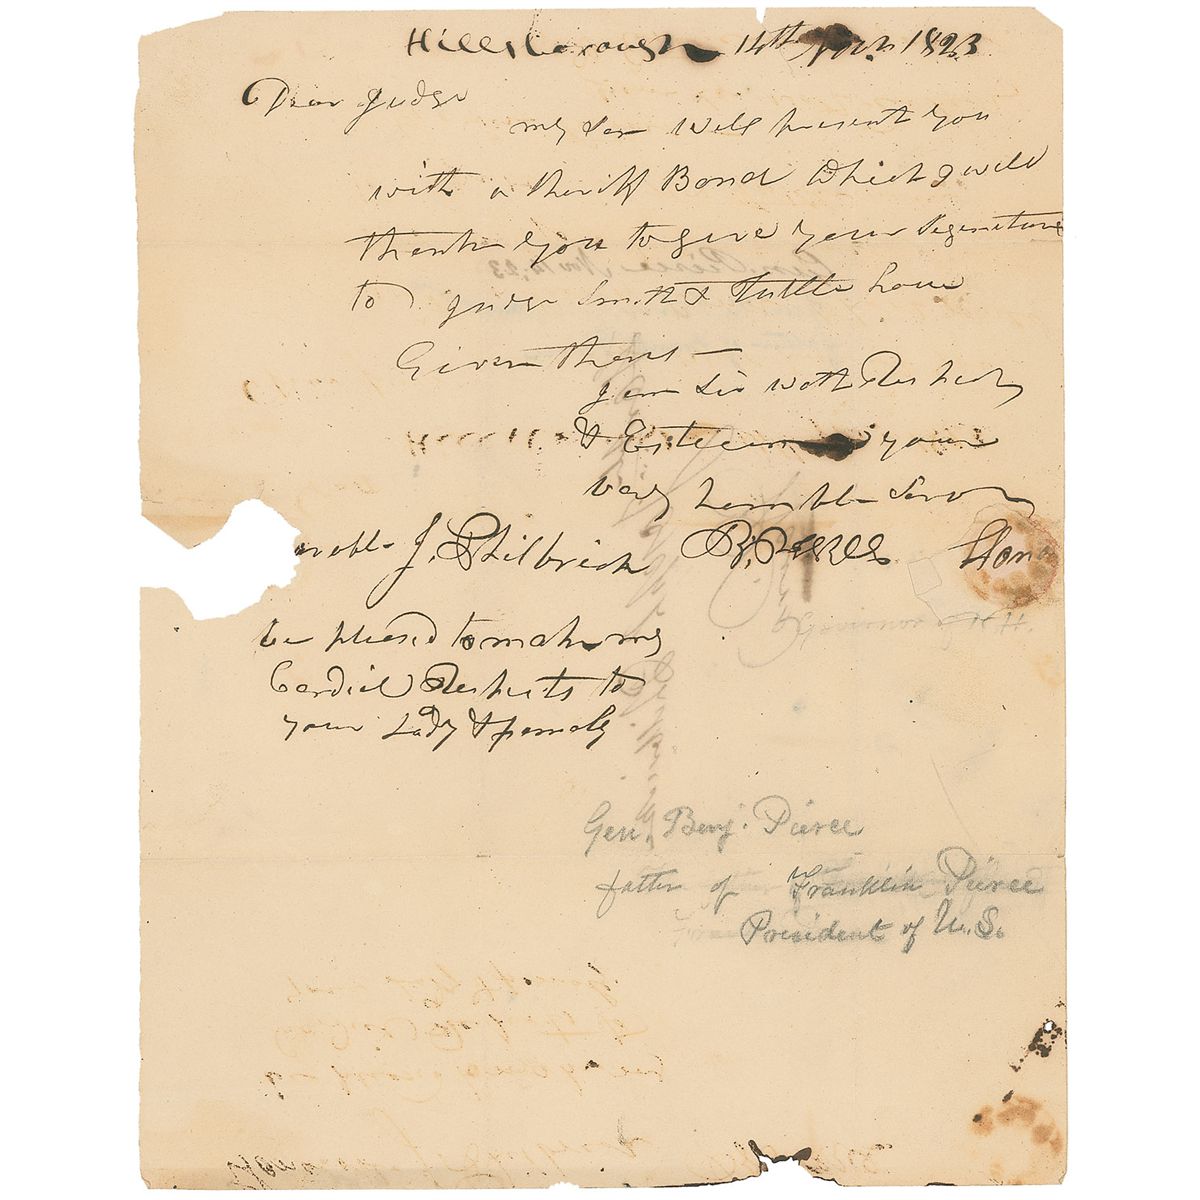 Hillsborough 14th Novr. 1823
Dear Judge
my son will present you
with a Sheriff Bond Which I will
thank you to give your Signeture
to Judge Smith & Tuttle have
Given thers —
I am Sir with Respect
& Esteem your
very humble Servt
B. Pierce Hono
rable J. Philbrick
be pleased to make my
Cordiel Respects to
your Lady & famely
Governor of N.H.
Gen. Benj. Pierce
father of Franklin Pierce
President of U.S.